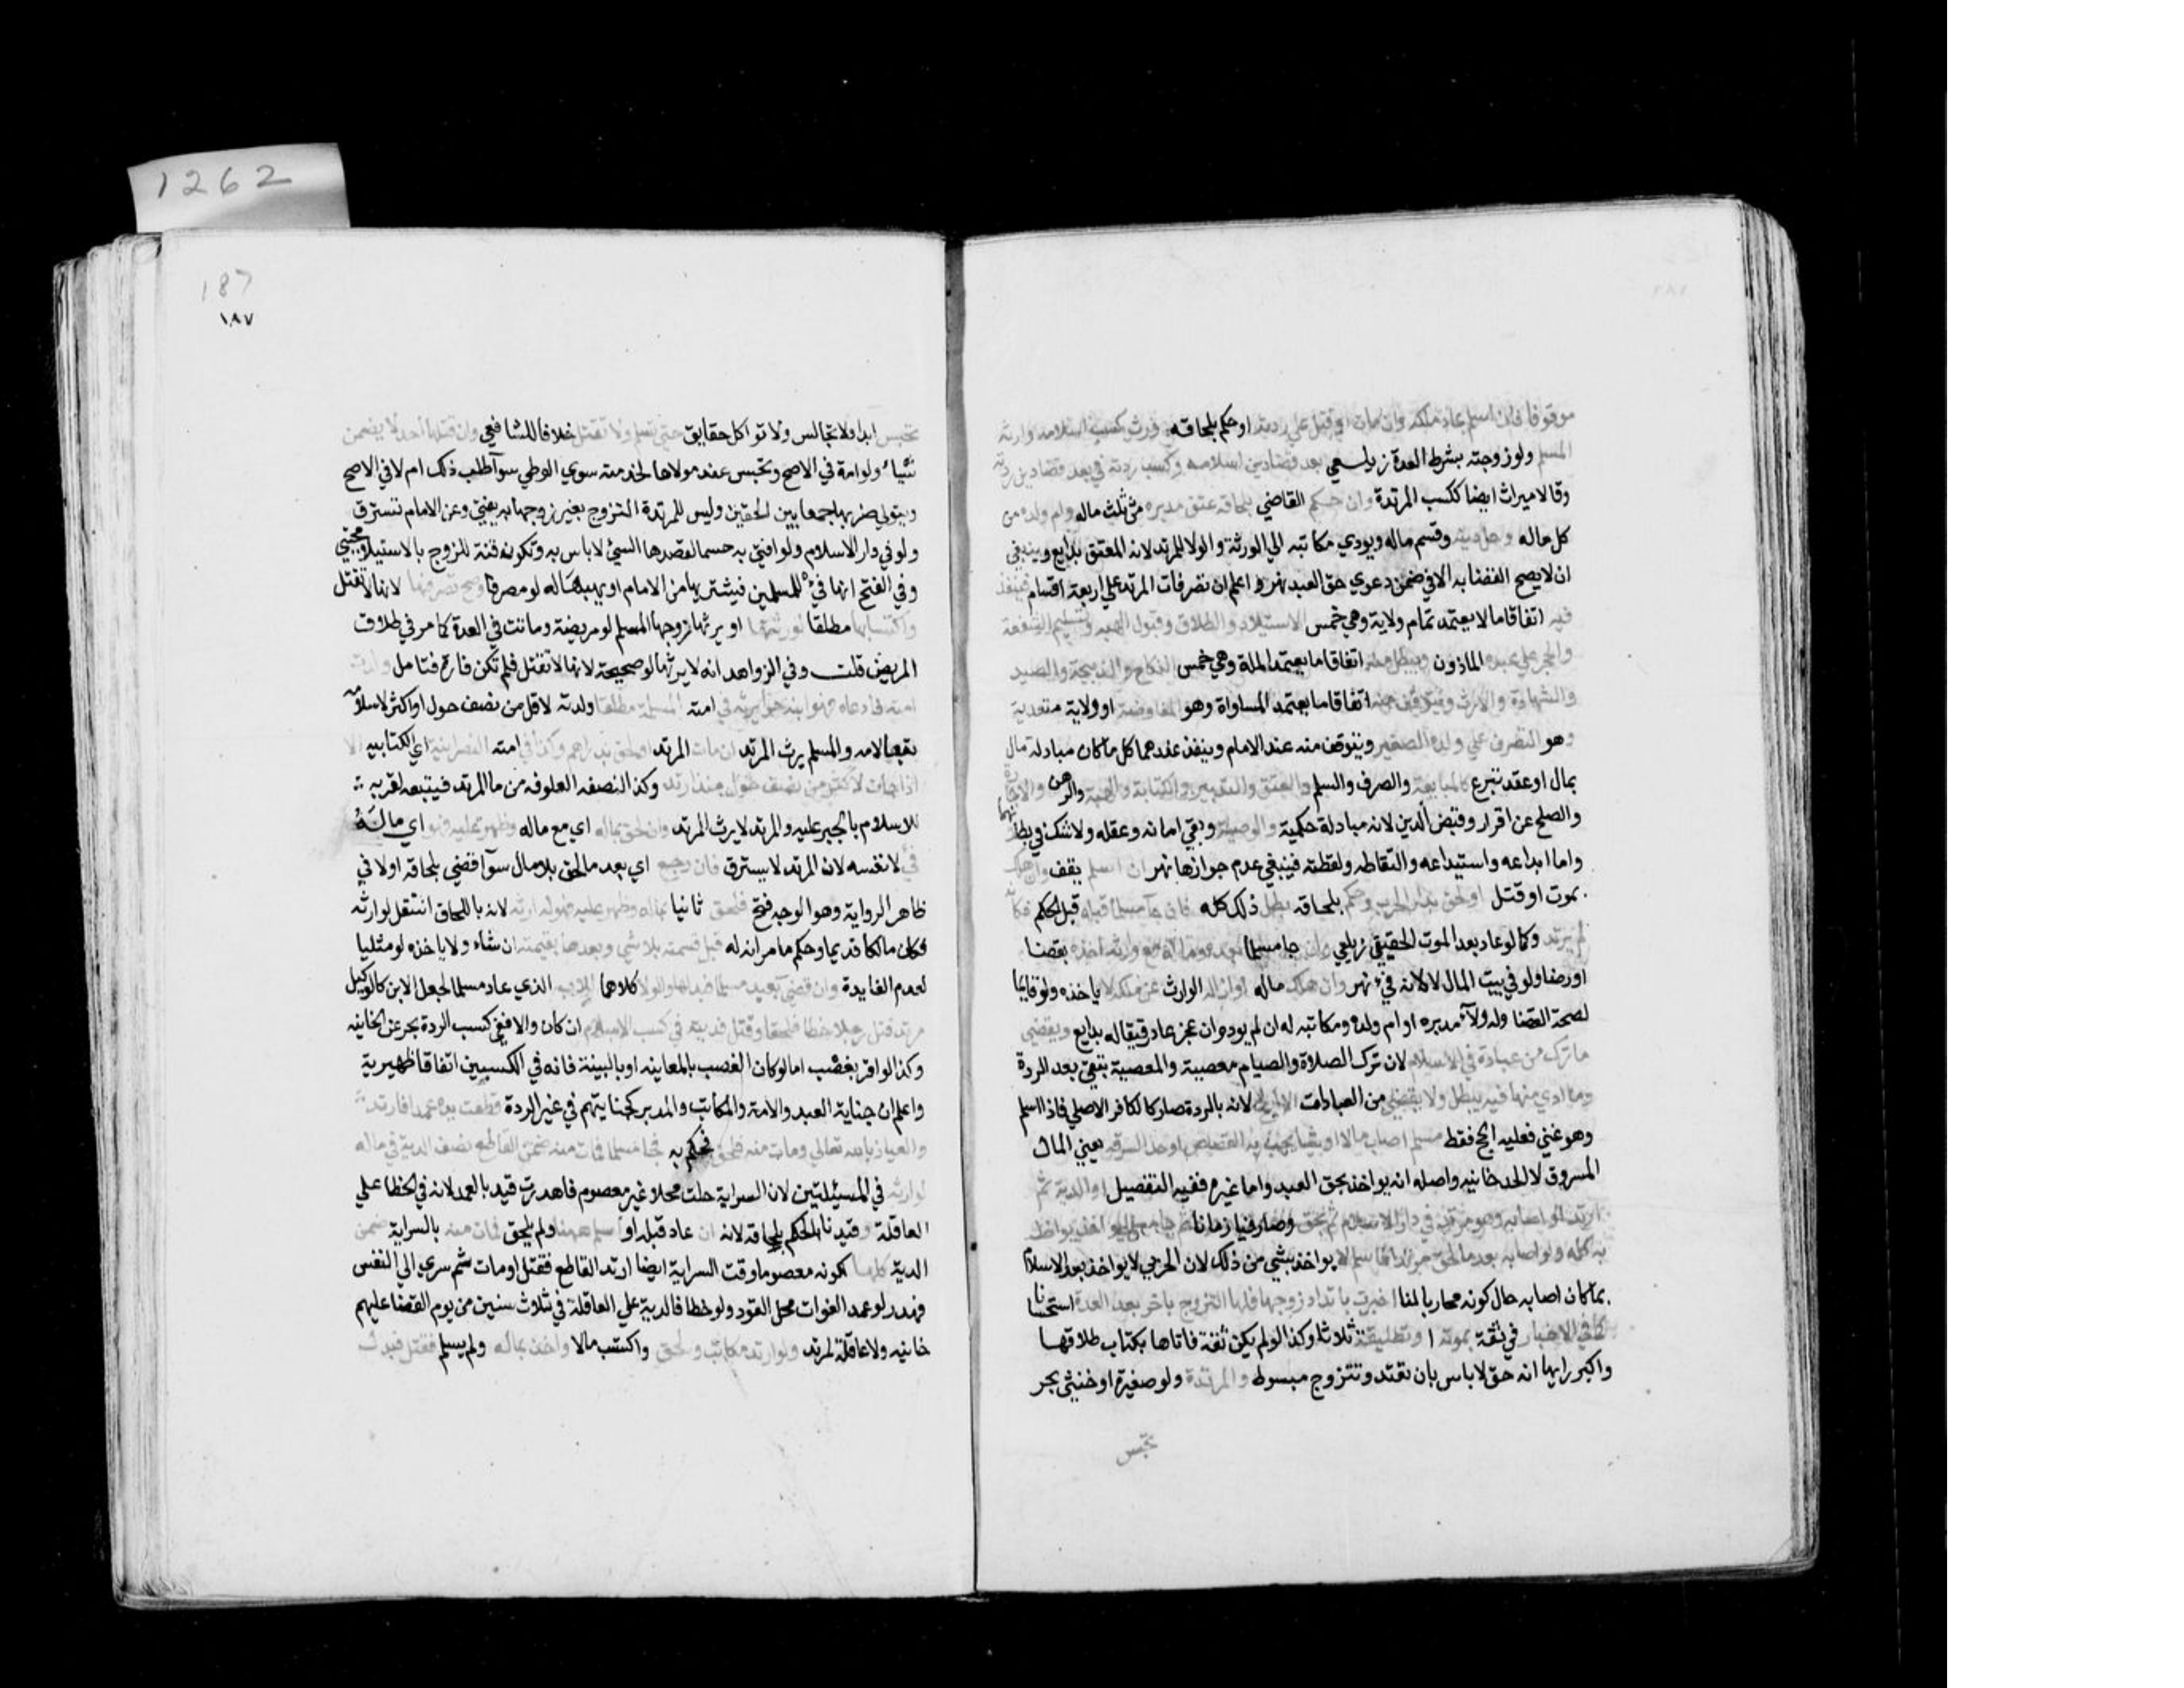 موقوفا فان اسلم عاد ملكه وان مات او قتل علي ردته او حكم بلحاقه ورث كسب اسلامه وارثه
المسلم ولو زوجته بشرط العدة زيلعي بعد قضا دين اسلامه وكسب ردته فيء بعد قضا دين ردته
وقالا ميراث ايضا ككسب المرتدة وان حكم القاضي بلحاقه عتق مدبره من ثلث ماله وام ولده من
كل ماله وحل دينه وقسم ماله ويودي مكاتبه الي الورثة والولا للمرتد لانه المعتق بدايع وينبغي
ان لا يصح القضا به الا في ضمن دعوي حق العبد نهر واعلم ان تصرفات المرتد علي اربعة اقسام فينفذ
فيه اتفاقا ما لا يعتمد تمام ولاية وهي خمس الاستيلاد والطلاق وقبول الهبه وتسليم الشفعة
والحجر علي عبده الماذون ويبطل منه اتفاقا ما يعتمد الملة وهي خمس النكاح والذبيحة والصيد
والشهادة والارث ويتوقف منه اتفاقا ما يعتمد المساواة وهو المفاوضة او ولاية متعدية
وهو التصرف علي ولده الصغير ويتوقف منه عند الامام وينفذ عندهما كل ما كان مبادلة مال
بمال او عقد تبرع كالمبايعة والصرف والسلم والعتق والتدبير والكتابة والهبه والرهن والاجارة
والصلح عن اقرار وقبض الدين لانه مبادلة حكمية والوصية وبقي امانه وعقله ولا شك في بطلانهما
واما ايداعه واستيداعه والتقاطه ولقطته فينبغي عدم جوازها نهر ان اسلم يقف وان هلك
بموت او قتل او لحق بدار الحرب وحكم بلحاقه بطل ذلك كله فان جا مسلما قبله قبل الحكم فكانه
لم يرتد وكما لو عاد بعد الموت الحقيقي زيلعي وان جا مسلما بعده وماله مع وارثه اخذه بقضا
او رضا ولو في بيت المال لا لانه فيء نهر وان هلك ماله او ازاله الوارث عن ملكه لا ياخذه ولو قايما
لصحة القضا وله ولاء مدبره او ام ولده ومكاتبه له ان لم يوده وان عجز عاد رقيقا له بدايع ويقضي
ما ترك من عبادة في الاسلام لان ترك الصلاة والصيام معصية والمعصية تبقي بعد الردة
وما ادي منها فيه يبطل ولا يقضي من العبادات الا الحج لانه بالردة صار كالكافر الاصلي فاذا اسلم
وهو غني فعليه الحج فقط مسلم اصاب مالا او شيا يجب به القصاص او حد السرقه يعني المال
المسروق لا الحد خانيه واصله انه يواخذ بحق العبد واما غيره ففيه التفصيل او الدية ثم
ارتد او اصابه وهو مرتد في دار الاسلام ثم لحق وصار فينا زمانا ثم جا مسلما يواخذ به
به كله ولو اصابه بعد ما لحق مرتدا فاسلم لا يواخذ بشي من ذلك لان الحربي لا يواخذ بعد الاسلام
بما كان اصابه حال كونه محاربا لنا اخبرت بارتداد زوجها فلها التزوج باخر بعد العدة استحسانا
كما في الاخبار في ثقة بموته او تطليقه ثلاثا وكذا لو لم يكن ثقة فاتاها بكتاب طلاقها
واكبر رايها انه حق لا باس بان تعتد وتتزوج مبسوط والمرتدة ولو صغيرة او خنثي بحر
تحبس
187
١٨٧
تحبس ابدا ولا تجالس ولا تواكل حقايق حتي تسلم ولا تقتل خلافا للشافعي وان قتلها احد لا يضمن
شيا ولو امة في الاصح وتحبس عند مولاها لخدمته سوي الوطي سوآ طلب ذلك ام لا في الاصح
ويتولي ضربها جمعا بين الحقين وليس للمرتدة التزوج بغير زوجها به يفتي وعن الامام تسترق
ولو في دار الاسلام ولو افتي به حسما لقصدها السيئ لا باس به وتكون قنة للزوج بالاستيلا مجتبي
وفي الفتح انها فيء للمسلمين فيشتريها من الامام او يهبها له لو مصرفا وصح تصرفها لانها لا تقتل
واكتسابها مطلقا لورثتها او يرثها زوجها المسلم لو مريضة وماتت في العدة كما مر في طلاق
المريض قلت وفي الزواهر انه لا يرثها لو صحيحة لانها لا تقتل فلم تكن فارة فتامل ولدت
امته فادعاه فهو ابنه حرا يرثه في امته المسلمة مطلقا ولدته لاقل من نصف حول او اكثر لاسلامه
تبعا لامه والمسلم يرث المرتد ان مات المرتد او لحق بدارهم وكذا في امته النصرانية اي الكتابيه الا
اذا جات لاكثر من نصف حول منذ ارتد وكذا لنصفه العلوقه من ما المرتد فيتبعه لقربه
للاسلام بالجبر عليه والمرتد لا يرث المرتد وان لحق بماله اي مع ماله وظهر عليه فهو اي ماله
فيء لا نفسه لان المرتد لا يسترق فان رجع اي بعد ما لحق بلا مال سوآ قضي بلحاقه او لا في
ظاهر الرواية وهو الوجه فتح فلحق ثانيا بماله وظهر عليه فهو لوارثه لانه باللحاق انتقل لوارثه
فكان مالكا قديما وحكمه ما مر انه له قبل قسمته بلا شي وبعدها بقيمته ان شاء ولا ياخذه لو مثليا
لعدم الفايدة وان قضي بعبد مرتد لحق لابنه فكاتبه فجا مسلما فبدلها والولا كلاهما للاب الذي عاد مسلما لجعل الابن كالوكيل
مرتد قتل رجلا خطا فلحق او قتل فديته في كسب الاسلام ان كان والا ففي كسب الردة بحر عن الخانيه
وكذا لو اقر بغصب اما لو كان الغصب بالمعاينه او بالبينة فانه في الكسبين اتفاقا ظهيرية
واعلم ان جناية العبد والامة والمكاتب والمدبر كجنايتهم في غير الردة قطعت يده عمدا فارتد
والعياذ بالله تعالي ومات منه او لحق فحكم به فجا مسلما فمات منه ضمن القاطع نصف الدية في ماله
لوارثه في المسئلتين لان السراية حلت محلا غير معصوم فاهدرت قيد بالعمد لانه في الخطا علي
العاقلة وقيدنا الحكم بلحاقه لانه ان عاد قبله او اسلم ههنا ولم يلحق فمات منه بالسراية ضمن
الدية كلها لكونه معصوما وقت السراية ايضا ارتد القاطع فقتل او مات ثم سري الي النفس
فهدر لو عمد الفوات محل القود ولو خطا فالدية علي العاقلة في ثلاث سنين من يوم القضا عليهم
خانيه ولا عاقلة لمرتد ولو ارتد مكاتب ولحق واكتسب مالا واخذ بماله ولم يسلم فقتل فبدل
1262